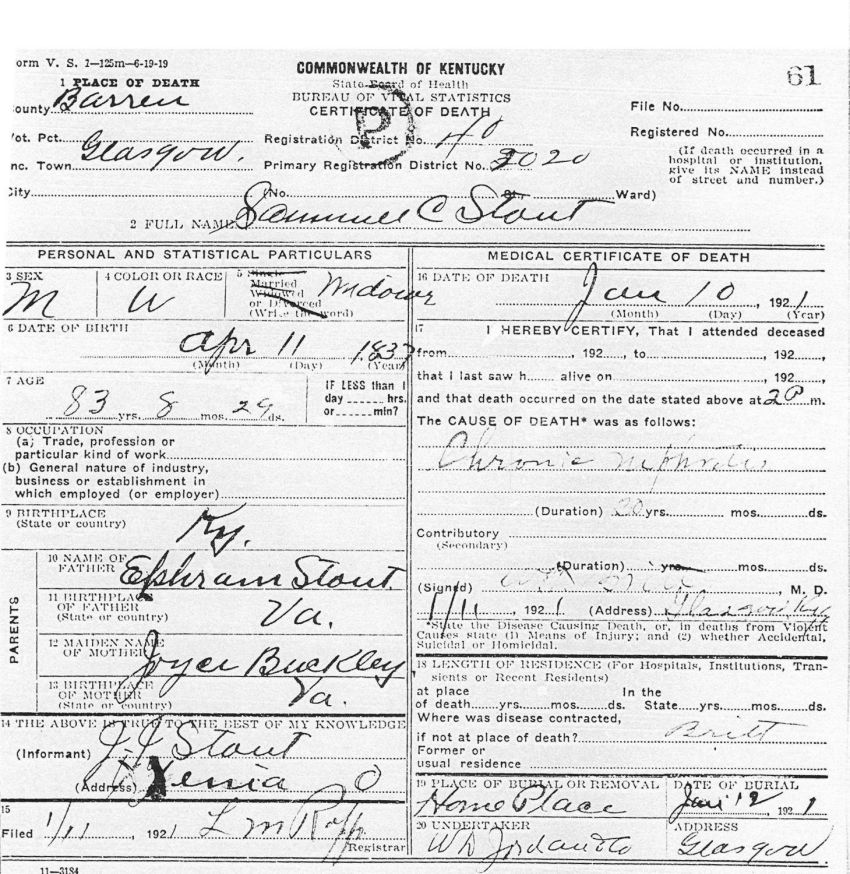 orm V. S. 1—125m—6-19-19
COMMONWEALTH OF KENTUCKY
State Board of Health
BUREAU OF VITAL STATISTICS
CERTIFICATE OF DEATH
61
1 PLACE OF DEATH
ounty Barren
File No.
ot. Pct.
Registration District No. 40
Registered No.
nc. Town Glasgow.
Primary Registration District No. 3020
(If death occurred in a
hospital or institution,
give its NAME instead
of street and number.)
P
City (No. St., Ward)
2 FULL NAME Sammuel C Stout
PERSONAL AND STATISTICAL PARTICULARS
3 SEX
M
4 COLOR OR RACE
W
5 Single
Married
Widowed
or Divorced
(Write the word)
Widower
6 DATE OF BIRTH
Apr 11 1837
(Month) (Day) (Year)
7 AGE
83 yrs. 8 mos. 29 ds.
IF LESS than 1
day hrs.
or min?
8 OCCUPATION
(a) Trade, profession or
particular kind of work
(b) General nature of industry,
business or establishment in
which employed (or employer)
9 BIRTHPLACE
(State or country)
Ky.
PARENTS
10 NAME OF
FATHER
Ephram Stout
11 BIRTHPLACE
OF FATHER
(State or country)
Va.
12 MAIDEN NAME
OF MOTHER
Joyce Buckley
13 BIRTHPLACE
OF MOTHER
(State or country)
Va.
14 THE ABOVE IS TRUE TO THE BEST OF MY KNOWLEDGE
(Informant) J. J Stout
(Address) Xenia O
15
Filed 1/11, 1921 L M
Registrar
11—3184
MEDICAL CERTIFICATE OF DEATH
16 DATE OF DEATH
Jan 10, 1921
(Month) (Day) (Year)
17 I HEREBY CERTIFY, That I attended deceased
from , 192 , to , 192 ,
that I last saw h alive on , 192 ,
and that death occurred on the date stated above at 2P m.
The CAUSE OF DEATH* was as follows:
Chronic nephritis
(Duration) 20 yrs. mos. ds.
Contributory
(Secondary)
(Duration) yrs. mos. ds.
(Signed) , M. D.
1/11, 1921 (Address) Glasgow Ky
*State the Disease Causing Death, or, in deaths from Violent
Causes state (1) Means of Injury; and (2) whether Accidental,
Suicidal or Homicidal.
18 LENGTH OF RESIDENCE (For Hospitals, Institutions, Tran-
sients or Recent Residents)
at place In the
of death yrs. mos. ds. State yrs. mos. ds.
Where was disease contracted,
if not at place of death?
Former or
usual residence
19 PLACE OF BURIAL OR REMOVAL
Home Place
DATE OF BURIAL
Jan 12 1921
20 UNDERTAKER
W D Jordan & Co
ADDRESS
Glasgow